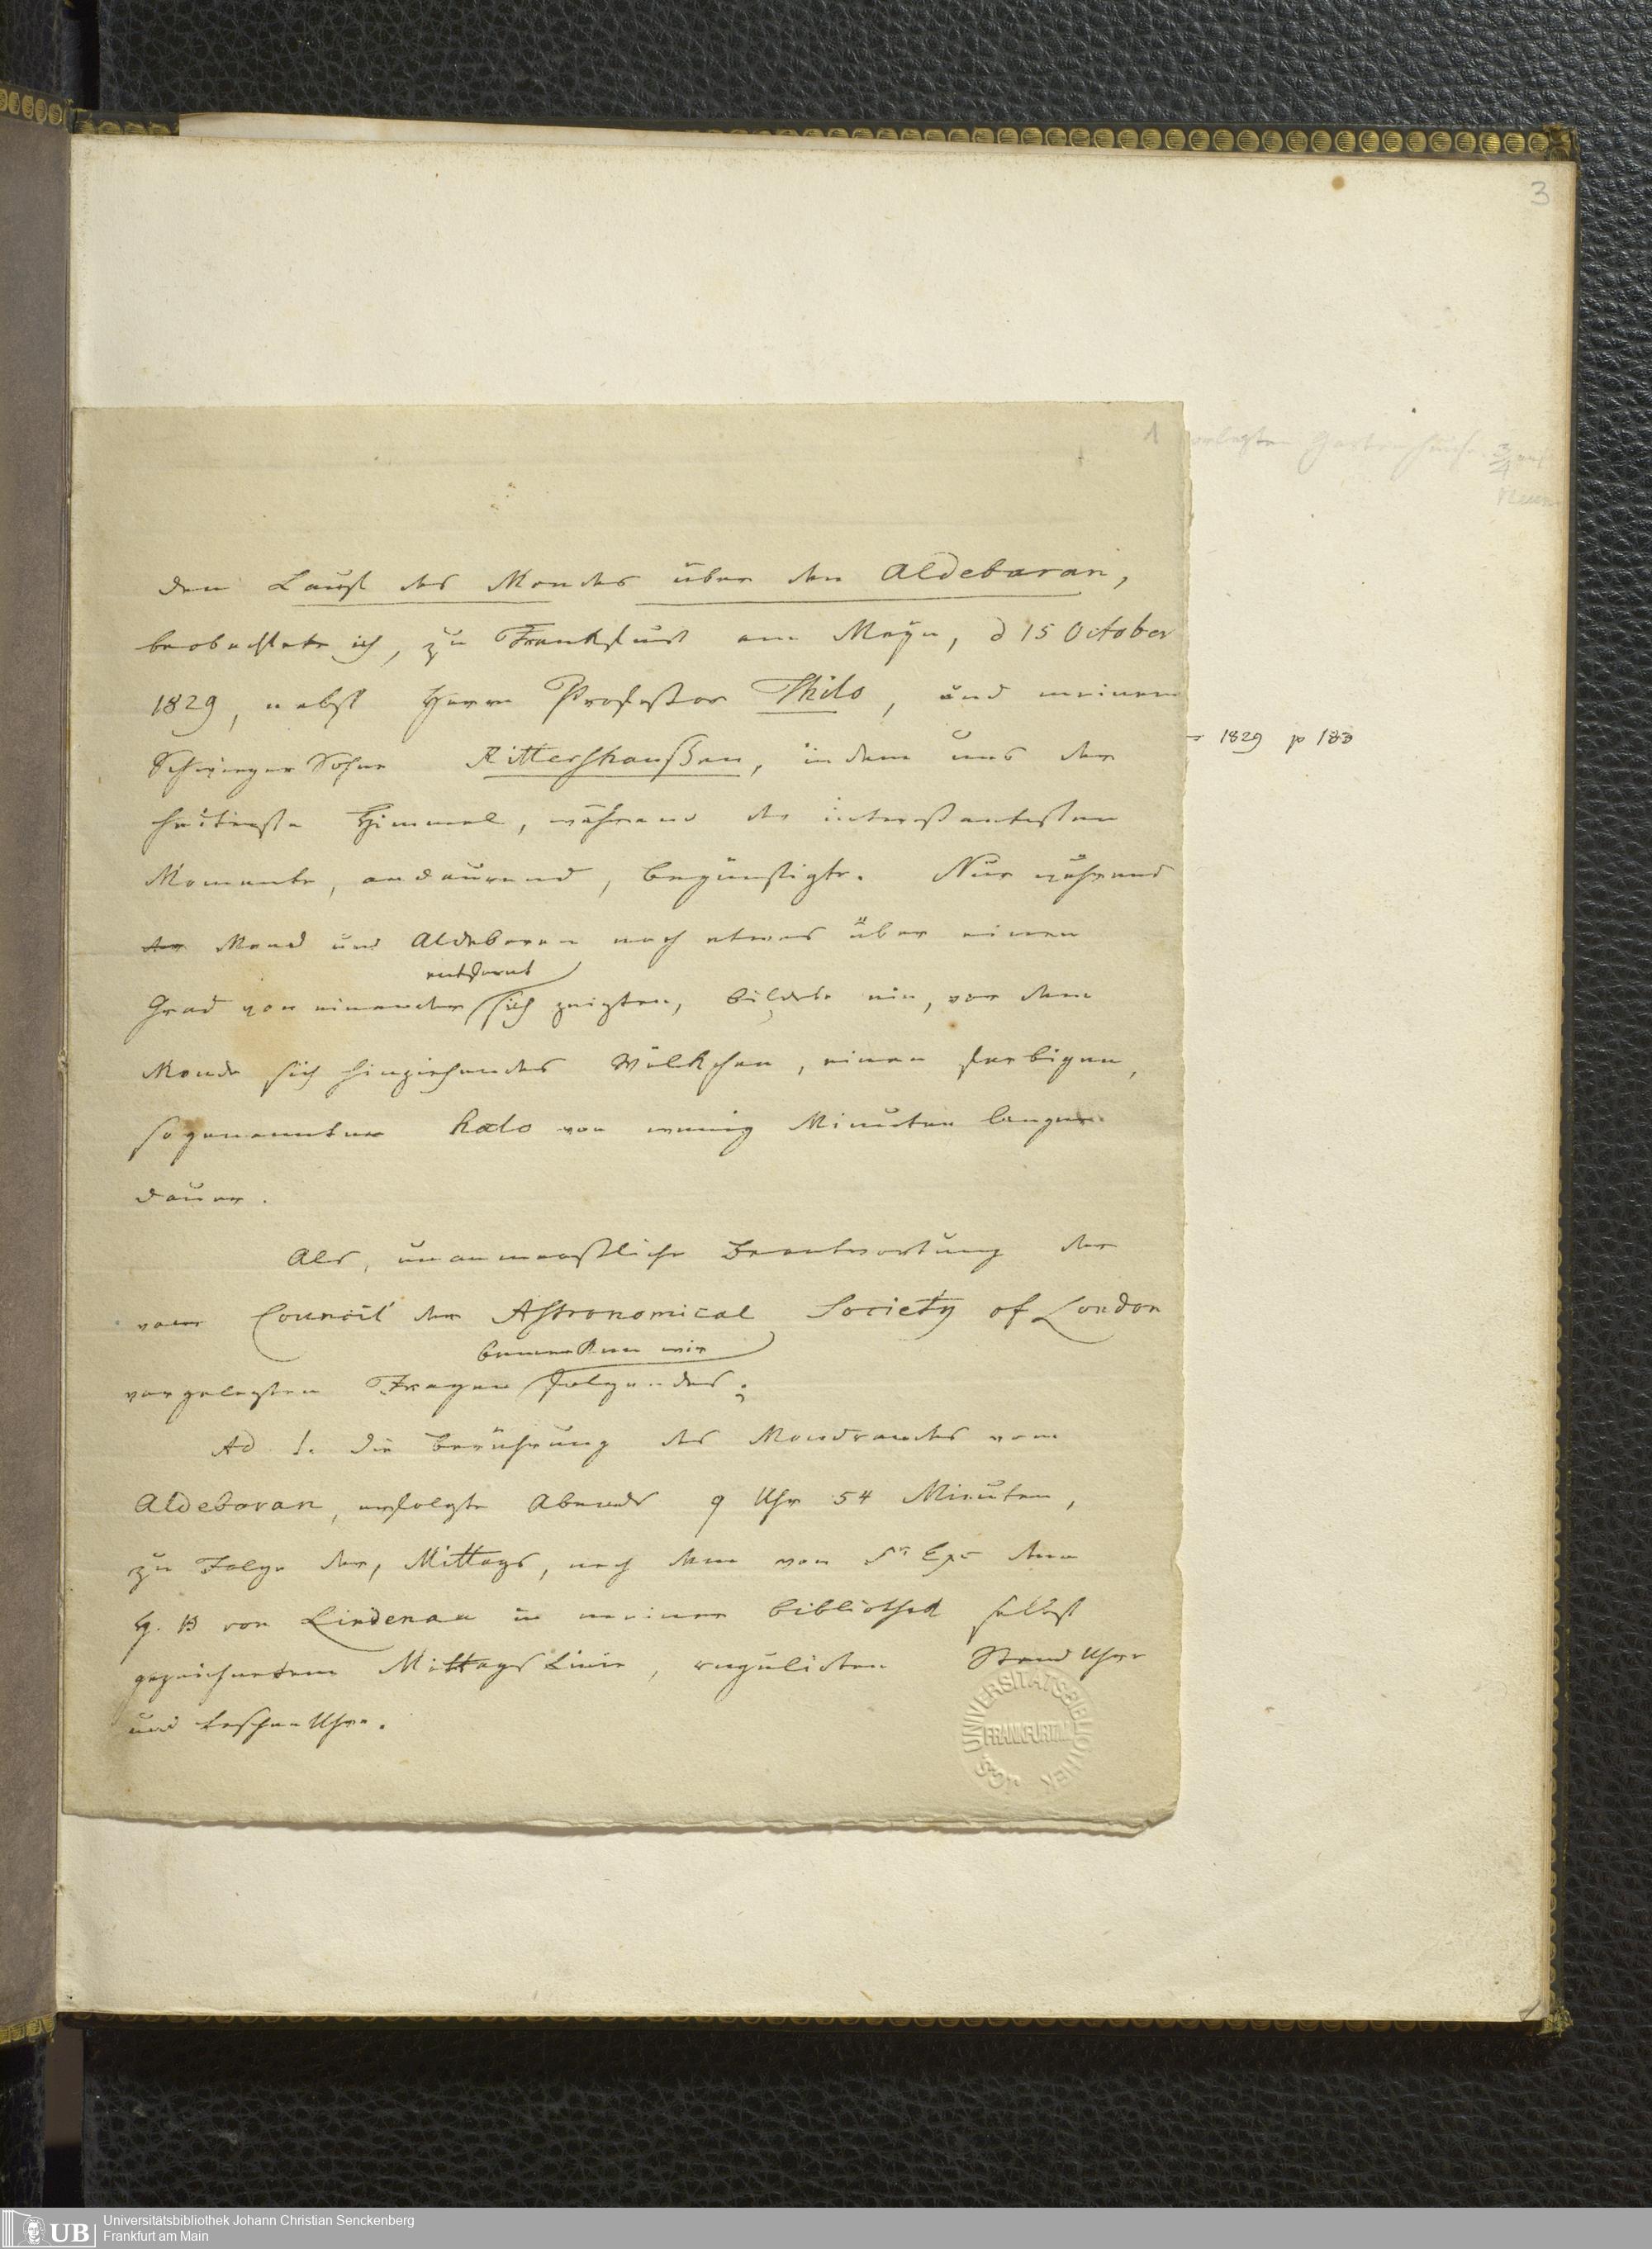 3
1
Den Lauf des Mondes über den Aldebaran,
beobachtete ich, zu Frankfurt am Mayn, d 15 October
1829, nebst Herrn Professor Thilo, und meinem
Schwieger Sohne Rittershaußen, indem uns der
heiterste Himmel, während der interessantesten
Momente, andaurend, begünstigte. Nur während
der Mond und Aldebaran noch etwas über einen
entfernt
Grad von einander sich zeigten, bildete ein, vor dem
Monde sich hinziehendes Wölkchen, einen farbigen,
sogenannten halo von wenig Minuten langer
Dauer.
Als, unanmaßliche Beantwortung der
vom Council der Astronomical Society of London
bemerken wir
vorgelegten Fragen folgendes:
Ad 1. Die Berührung des Mondrandes vom
Aldebaran, erfolgte Abends 9 Uhr 54 Minuten,
zu Folge der, Mittags, nach dem von Sr Exc dem
H. B von Lindenau in meiner Bibliothek selbst
gezeichnetem Mittags Linie, regulirten Stand Uhr
und taschen Uhr.
1829 p 183
UNIVERSITÄTSBIBLIOTHEK
FRANKFURT/M.
JCS
UB
Universitätsbibliothek Johann Christian Senckenberg
Frankfurt am Main